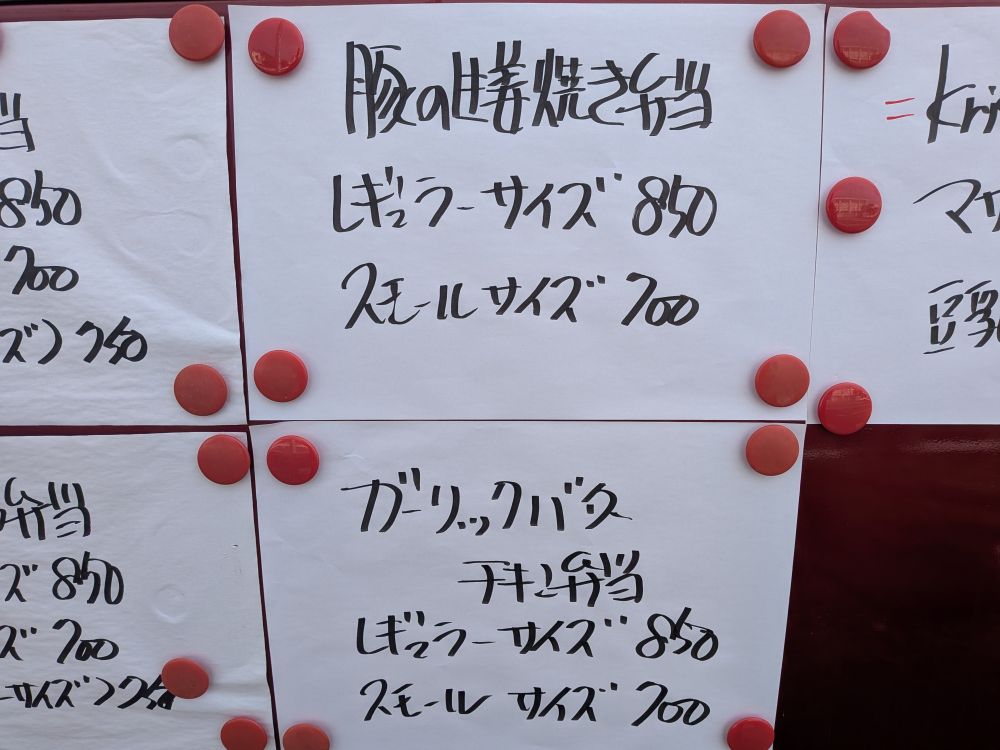 当
850
700
ズ) 750
豚の生姜焼き弁当
レギュラーサイズ 850
スモールサイズ 700
= Kri
マサ
豆乳
弁当
ズ 850
ズ 700
ーサイズ) 750
ガーリックバター
チキン弁当
レギュラーサイズ 850
スモール サイズ 700